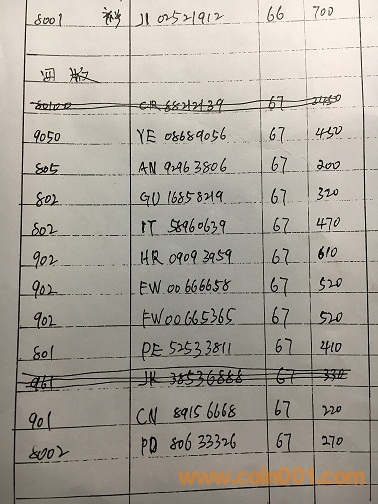 8001 补号 JI 02521912 66 700
四版
80100 CR 88212139 67
9050 YE 08689056 67 450
805 AN 92963806 67 200
802 GU 16858219 67 320
802 IT 58960639 67 470
902 HR 09093959 67 610
902 FW 00666658 67 520
902 FW 00665365 67 520
801 PE 52533811 67 410
961 JK 38536888 67 330
901 CN 89156668 67 220
8002 PD 80633326 67 270
www.coin001.com